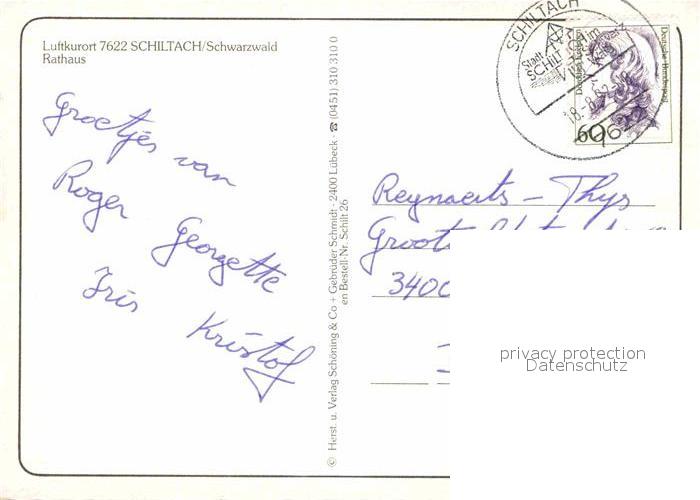 Luftkurort 7622 SCHILTACH/Schwarzwald
Rathaus
Groetjes van
Roger Georgette
Iris Kristof
© Herst. u. Verlag Schöning & Co + Gebrüder Schmidt · 2400 Lübeck · ☎ (0451) 310 310 0
en Bestell-Nr. Schilt 26
SCHILTACH
Stadt
SCHILT
im
Deutsche Bundespost
60
Reynaerts - Thys
Groot
3400
privacy protection
Datenschutz